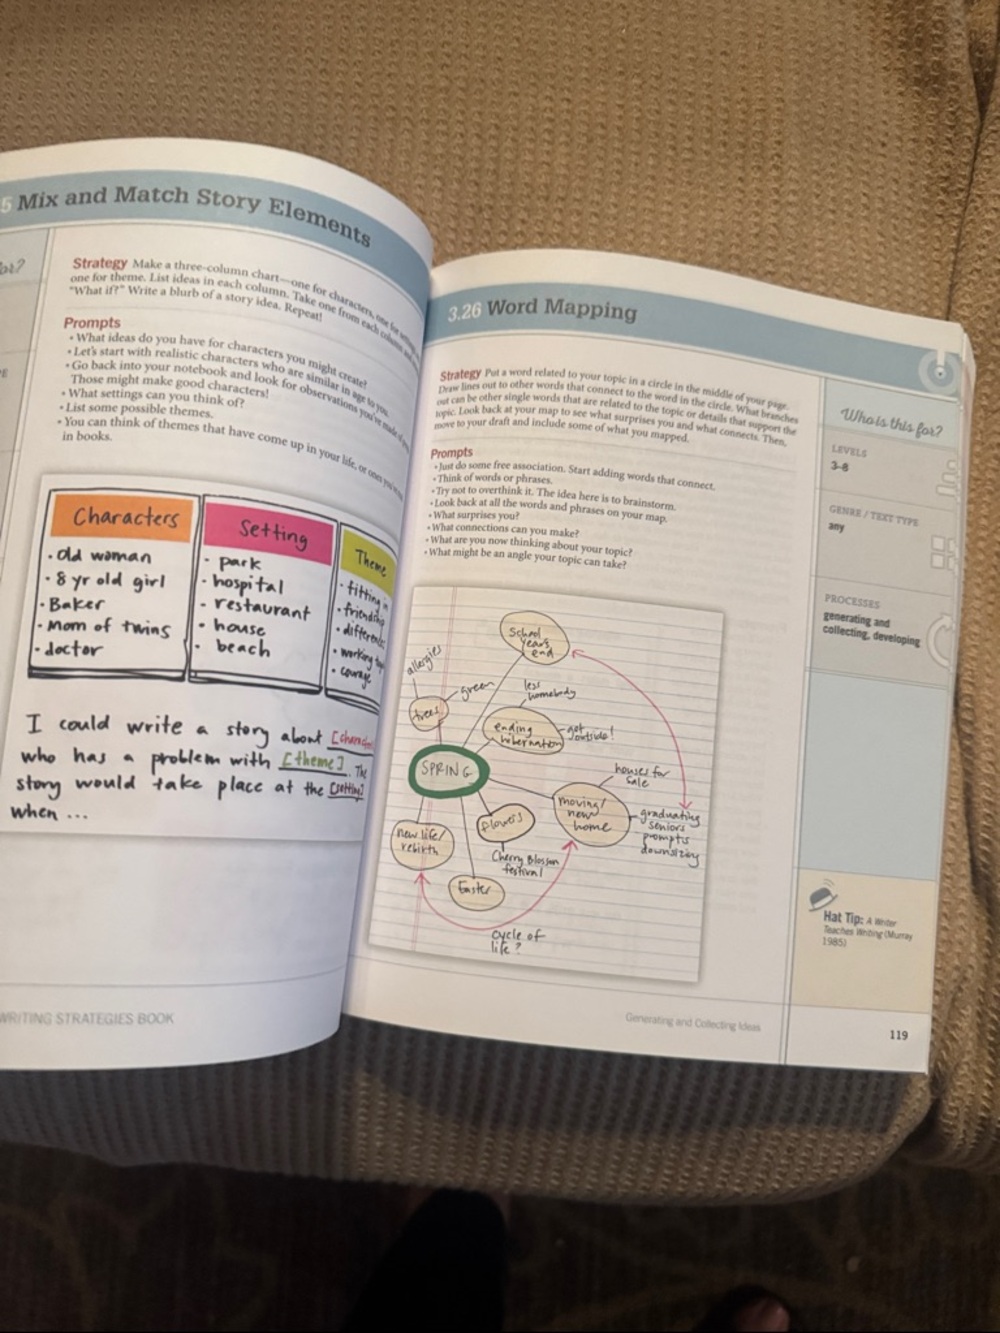 5 Mix and Match Story Elements
for?
Strategy Make a three-column chart—one for characters, one for setting,
one for theme. List ideas in each column. Take one from each column and
"What if?" Write a blurb of a story idea. Repeat!
Prompts
• What ideas do you have for characters you might create?
• Let's start with realistic characters who are similar in age to you.
• Go back into your notebook and look for observations you've made of
Those might make good characters!
• What settings can you think of?
• List some possible themes.
• You can think of themes that have come up in your life, or ones you've
in books.
Characters
• old woman
• 8 yr old girl
• Baker
• Mom of twins
• doctor
Setting
• park
• hospital
• restaurant
• house
• beach
Theme
• fitting in
• friendship
• working
• courage
I could write a story about
who has a problem with [theme]. The
story would take place at the [setting]
when ...
WRITING STRATEGIES BOOK
3.26 Word Mapping
Strategy Put a word related to your topic in a circle in the middle of your page.
Draw lines out to other words that connect to the word in the circle. What branches
out can be other single words that are related to the topic or details that support the
topic. Look back at your map to see what surprises you and what connects. Then,
move to your draft and include some of what you mapped.
Prompts
• Just do some free association. Start adding words that connect.
• Think of words or phrases.
• Try not to overthink it. The idea here is to brainstorm.
• Look back at all the words and phrases on your map.
• What surprises you?
• What connections can you make?
• What are you now thinking about your topic?
• What might be an angle your topic can take?
School
years
end
allergies
green
trees
less
homebody
ending
hibernation
get
outside!
SPRING
houses for
sale
moving/
new
home
graduating
seniors
prompts
downsizing
flowers
Cherry Blossom
festival
new life/
rebirth
Easter
cycle of
life?
Who is this for?
LEVELS
3–8
GENRE / TEXT TYPE
any
PROCESSES
generating and
collecting, developing
Hat Tip: A Writer
Teaches Writing (Murray
1985)
Generating and Collecting Ideas
119